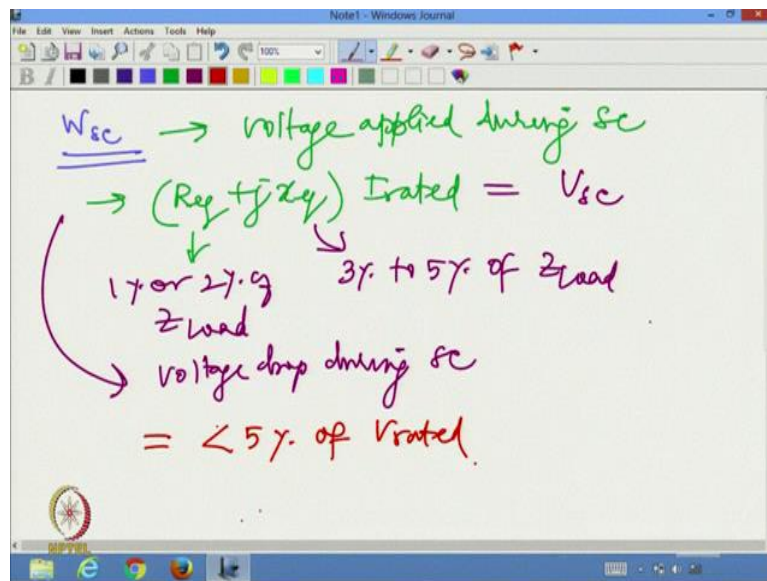 Note1 - Windows Journal
File Edit View Insert Actions Tools Help
100%
B I
Wsc → voltage applied during sc
→ (Req + j xeq) Irated = Vsc
1% or 2% of 3% to 5% of Zload
Zload
voltage drop during sc
= < 5% of Vrated.
NPTEL